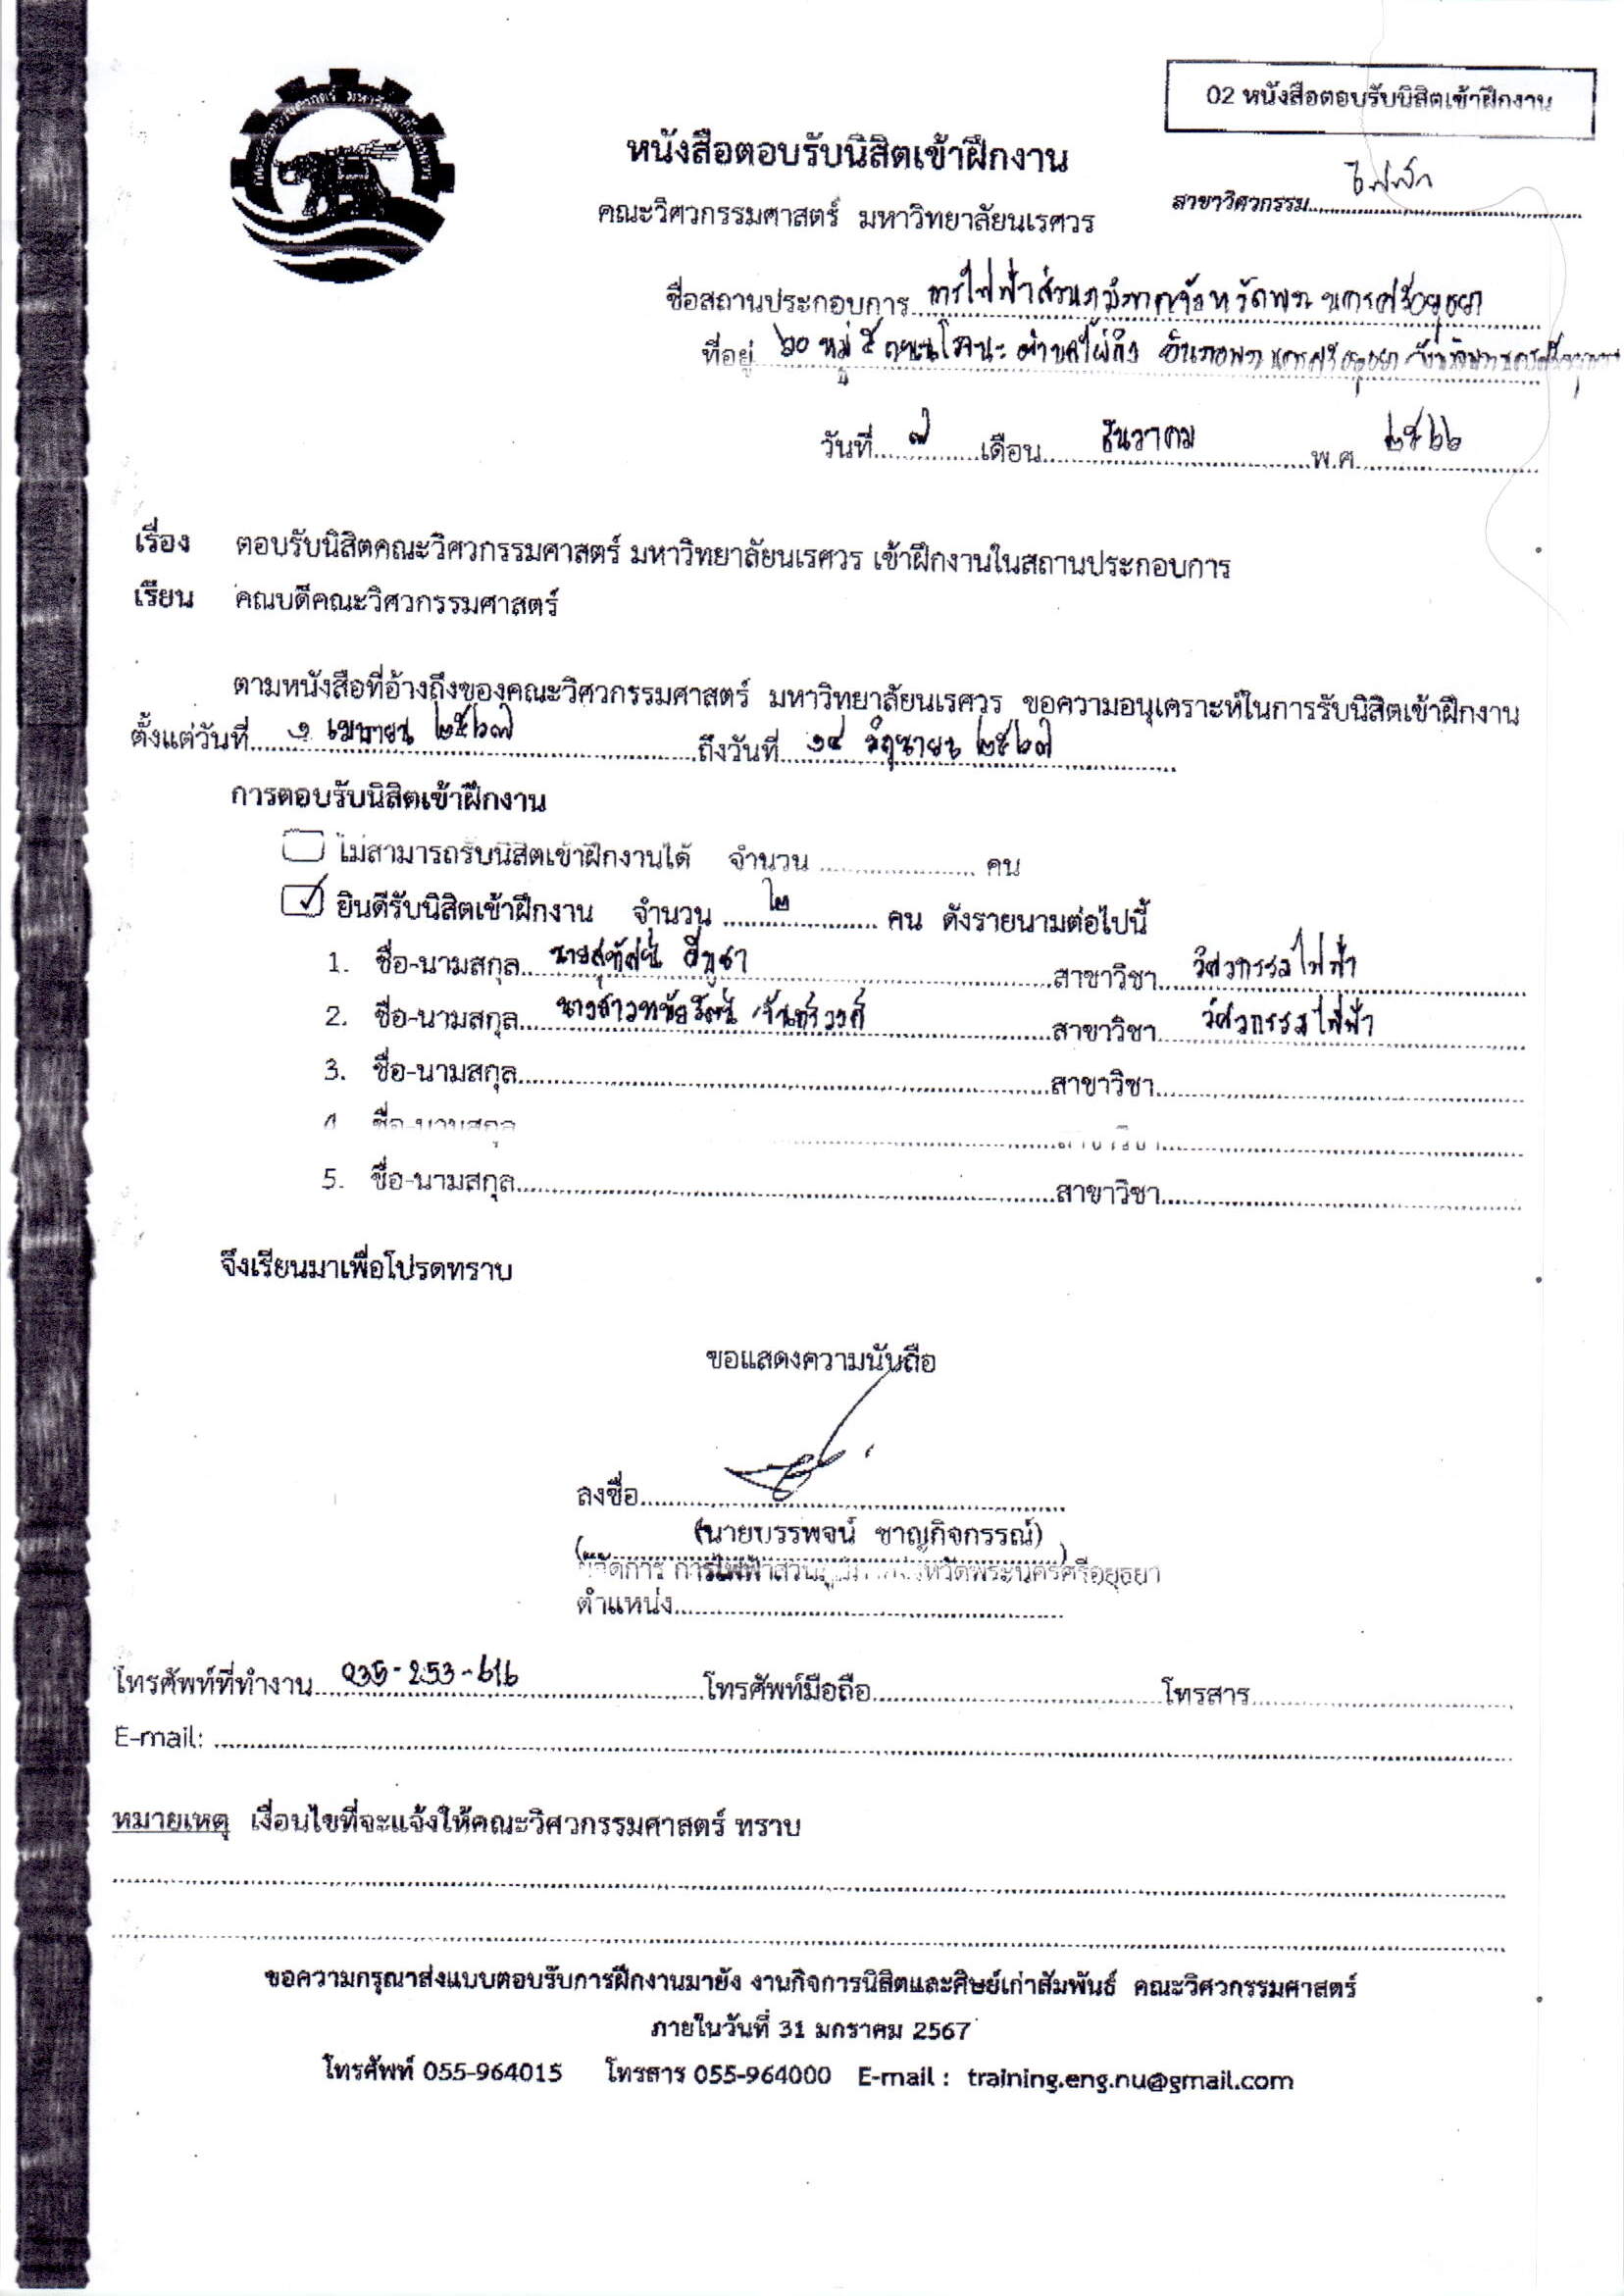 02 หนังสือตอบรับนิสิตเข้าฝึกงาน
หนังสือตอบรับนิสิตเข้าฝึกงาน
สาขาวิศวกรรม........ไฟฟ้า
คณะวิศวกรรมศาสตร์ มหาวิทยาลัยนเรศวร
ชื่อสถานประกอบการ การไฟฟ้าส่วนภูมิภาคจังหวัดพระนครศรีอยุธยา
ที่อยู่ ๖๐ หมู่ ๕ ถนนโรจนะ ตำบลไผ่ลิง อำเภอพระนครศรีอยุธยา จังหวัดพระนครศรีอยุธยา
วันที่ ๗ เดือน ธันวาคม พ.ศ. ๒๕๖๖
เรื่อง ตอบรับนิสิตคณะวิศวกรรมศาสตร์ มหาวิทยาลัยนเรศวร เข้าฝึกงานในสถานประกอบการ
เรียน คณบดีคณะวิศวกรรมศาสตร์
ตามหนังสือที่อ้างถึงของคณะวิศวกรรมศาสตร์ มหาวิทยาลัยนเรศวร ขอความอนุเคราะห์ในการรับนิสิตเข้าฝึกงาน
ตั้งแต่วันที่ ๑ เมษายน ๒๕๖๗ ถึงวันที่ ๑๔ มิถุนายน ๒๕๖๗
การตอบรับนิสิตเข้าฝึกงาน
ไม่สามารถรับนิสิตเข้าฝึกงานได้ จำนวน ........ คน
✓ ยินดีรับนิสิตเข้าฝึกงาน จำนวน ๒ คน ดังรายนามต่อไปนี้
1. ชื่อ-นามสกุล นายสุทัศน์ สาขาวิชา วิศวกรรมไฟฟ้า
2. ชื่อ-นามสกุล นางสาว สาขาวิชา วิศวกรรมไฟฟ้า
3. ชื่อ-นามสกุล........สาขาวิชา........
4. ชื่อ-นามสกุล........สาขาวิชา........
5. ชื่อ-นามสกุล........สาขาวิชา........
จึงเรียนมาเพื่อโปรดทราบ
ขอแสดงความนับถือ
ลงชื่อ........
(นายบรรพจน์ ชาญกิจกรรณ์)
ผู้จัดการ การไฟฟ้าส่วนภูมิภาคจังหวัดพระนครศรีอยุธยา
ตำแหน่ง........
โทรศัพท์ที่ทำงาน 035-253-616 โทรศัพท์มือถือ........โทรสาร........
E-mail: ........
หมายเหตุ เงื่อนไขที่จะแจ้งให้คณะวิศวกรรมศาสตร์ ทราบ
ขอความกรุณาส่งแบบตอบรับการฝึกงานมายัง งานกิจการนิสิตและศิษย์เก่าสัมพันธ์ คณะวิศวกรรมศาสตร์
ภายในวันที่ 31 มกราคม 2567
โทรศัพท์ 055-964015 โทรสาร 055-964000 E-mail : training.eng.nu@gmail.com